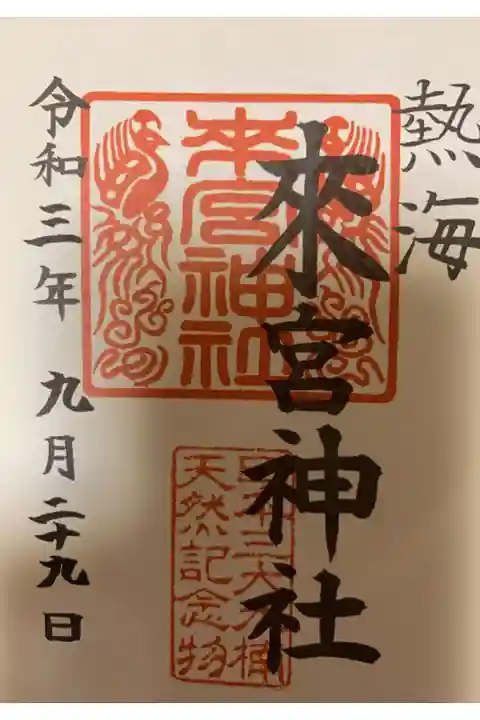 熱海
來宮神社
來宮神社
日本三大大楠
天然記念物
令和三年 九月二十九日